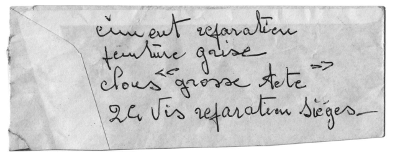 ciment reparation
peinture grise
Clous "grosse tete"
24 Vis reparation sièges_